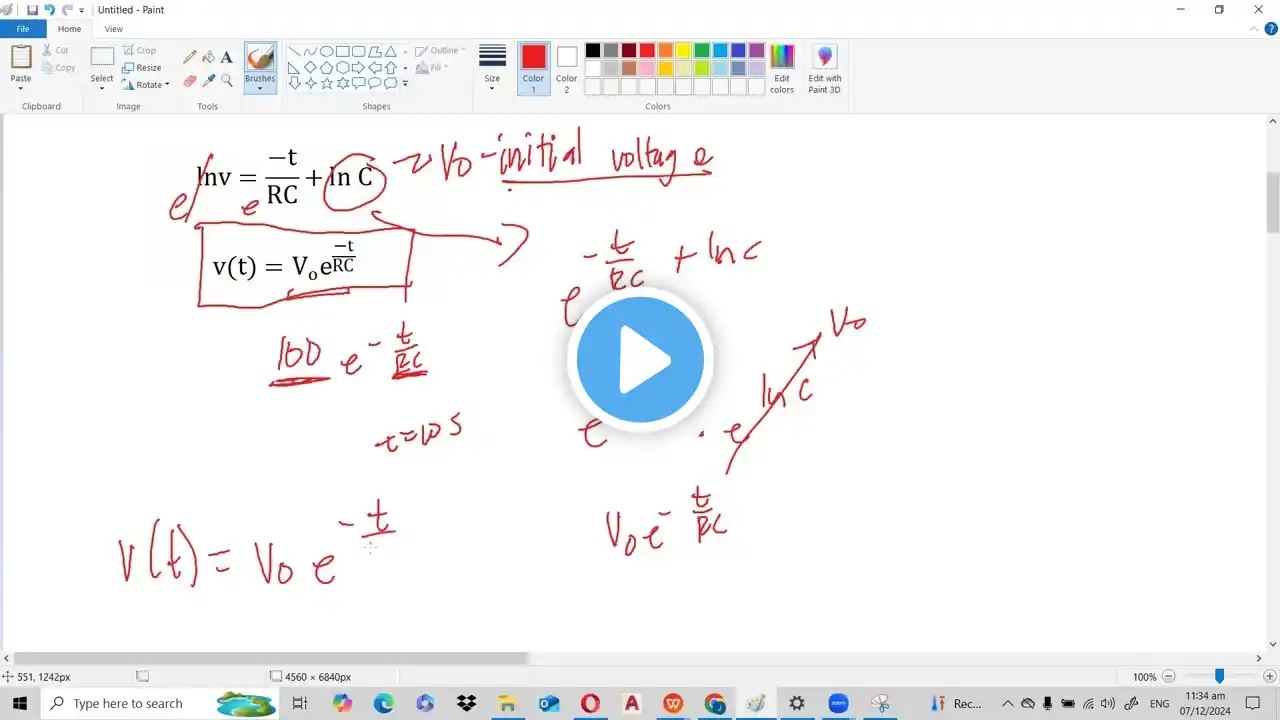 Untitled - Paint
File Home View
Paste Cut Copy
Clipboard
Select Crop Resize Rotate
Image
Tools
Brushes
Shapes
Outline
Fill
Size
Color 1
Color 2
Edit colors
Edit with Paint 3D
Colors
lnv = −t/RC + ln C
V₀ - initial voltage
e
e
v(t) = Vₒe^(−t/RC)
e^(-t/RC + ln C)
100 e^(-t/RC)
V₀
ln C
t=10 s
e · e
V₀ e^(-t/RC)
v(t) = V₀ e^(-t/
551, 1242px
4560 × 6840px
100%
Type here to search
Rec...
ENG
11:34 am
07/12/2024